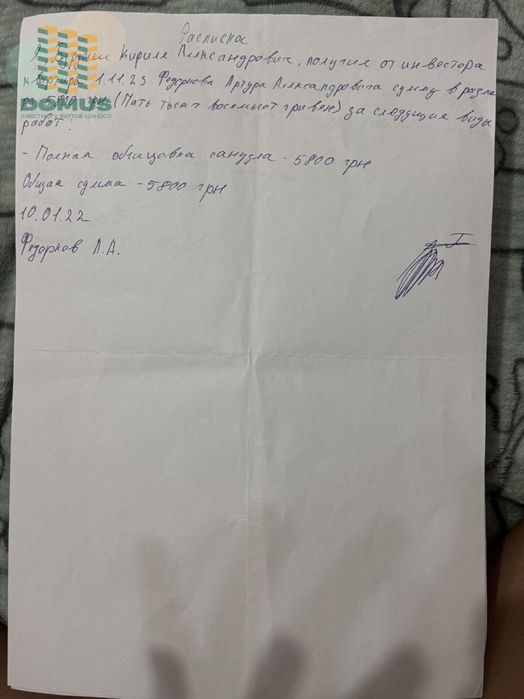 Расписка
Кирилл Александрович, получил от инвестора
квартиры 1.11.23 Федоркова Артура Александровича сумму в размере
(Пять тысяч восемьсот гривен) за следующие виды
работ:
- Полная облицовка санузла - 5800 грн
Общая сумма - 5800 грн
10.01.22
Федорков А.А.
DOMUS